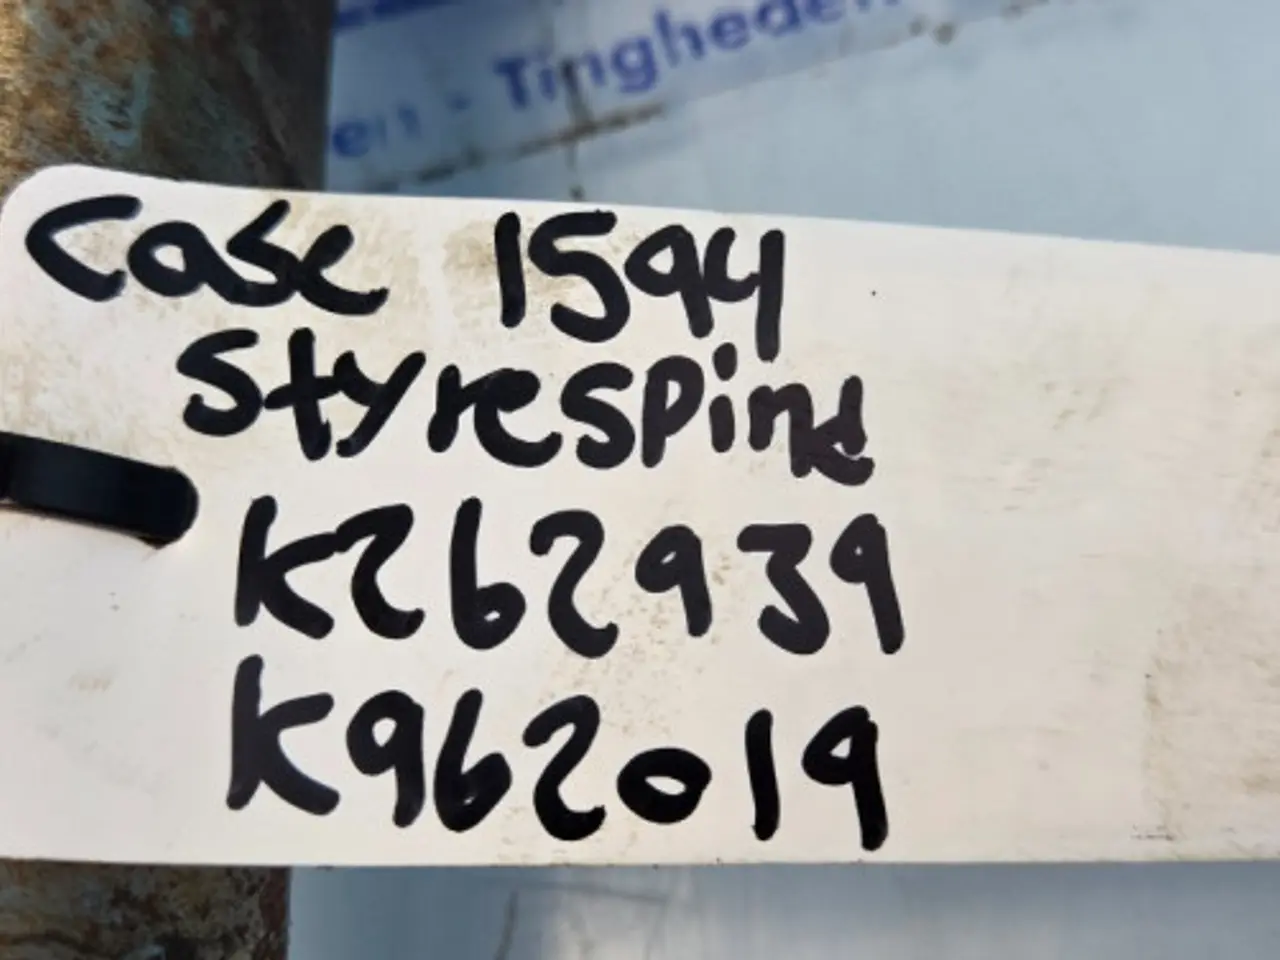 en - Tingheden
Case 1594
Styrespind
K262939
K962019